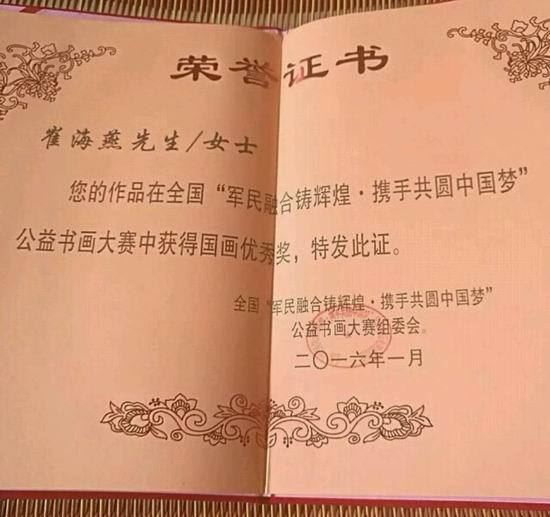 荣誉证书
崔海燕先生/女士
您的作品在全国“军民融合铸辉煌·携手共圆中国梦”
公益书画大赛中获得国画优秀奖，特发此证。
全国“军民融合铸辉煌·携手共圆中国梦”
公益书画大赛组委会。
二〇一六年一月